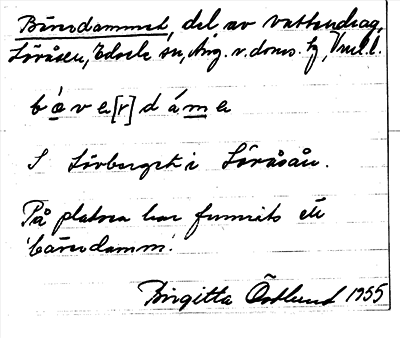 Bäverdammet, del av vattendrag,
Löråsen, Edsele sn, Ång. v. doms. tg, Vnl. l.
bǻvɐ[r]dáme
I Lörberget i Löråsån.
På platsen har funnits en
bäverdamm.
Birgitta Östlund 1955